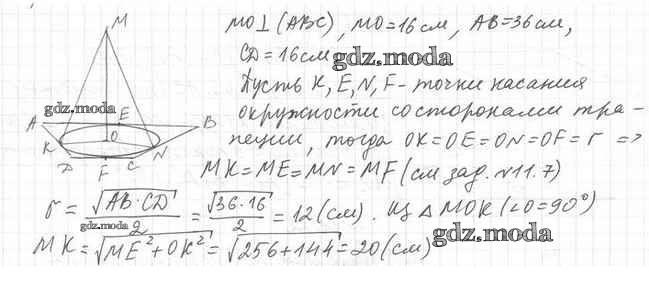 M
MO⊥(ABC), MO=16 см, AB=36 см,
CD=16 см gdz.moda
Пусть K, E, N, F - точки касания
gdz.moda
окружности со сторонами тра-
пеции, тогда OK=OE=ON=OF=r =>
MK=ME=MN=MF (см зад. №11.7)
A E B
K O N
D F C
r = √AB·CD / 2 = √36·16 / 2 = 12 (см). Из △MOK (∠O=90°)
gdz.moda
MK=√ME²+OK² = √256+144 = 20 (см)
gdz.moda